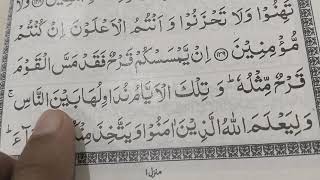 تَهِنُوْا وَلَا تَحْزَنُوْا وَاَنْتُمُ الْاَعْلَوْنَ اِنْ كُنْتُمْ
مُّؤْمِنِيْنَ ﴿۱۳۹﴾ اِنْ يَّمْسَسْكُمْ قَرْحٌ فَقَدْ مَسَّ الْقَوْمَ
قَرْحٌ مِّثْلُهٗ ؕ وَ تِلْكَ الْاَيَّامُ نُدَاوِلُهَا بَيْنَ النَّاسِ ۚ
وَلِيَعْلَمَ اللّٰهُ الَّذِيْنَ اٰمَنُوْا وَيَتَّخِذَ
منزل ۱